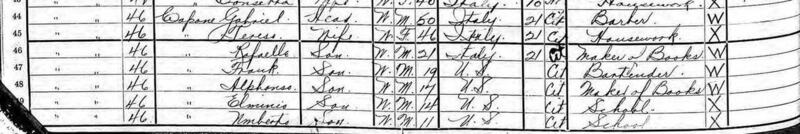 " " 46 Consetta Wife W. F. 40 Italy 10 Al Housework X
44 " " 46 Capone Gabriel Head W. M. 50 Italy 21 Cit Barber W
45 " " 46 " Teresa Wife W. F. 46 Italy 21 Cit Housework X
46 " " 46 " Rafaello Son W. M. 21 Italy 21 Cit Maker of Books W
47 " " 46 " Frank Son W. M. 19 U. S. Cit Bartender W
48 " " 46 " Alphonso Son W. M. 17 U. S. Cit Maker of Books W
49 " " 46 " Elminio Son W. M. 14 U. S. Cit School X
" " 46 " Umberto Son W. M. 11 U. S. Cit School X